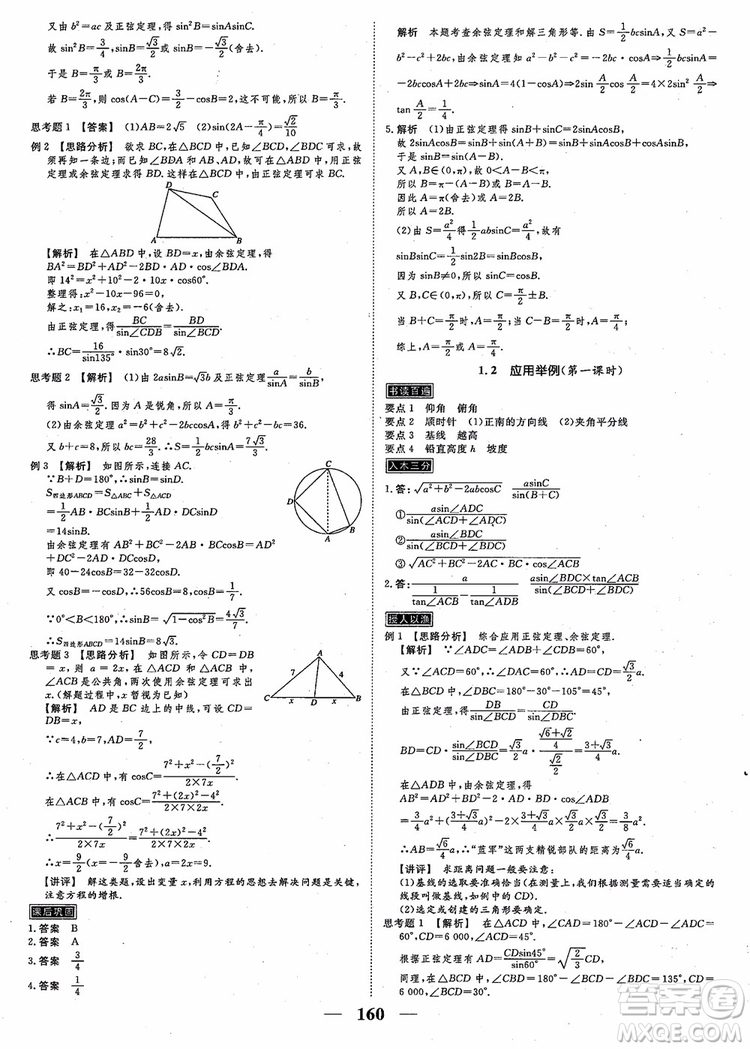 又由 b²=ac 及正弦定理得 sin²B=sinAsinC.
故 sin²B=3/4, sinB=√3/2 或 sinB=-√3/2(舍去).
于是 B=π/3 或 B=2π/3.
若 B=2π/3, 则 cos(A-C)=3/2-cosB=2, 这不可能, 所以 B=π/3.
思考题1 【答案】 (1)AB=2√5 (2)sin(2A-π/4)=√2/10
例2 【思路分析】 欲求 BC, 在△BCD 中, 已知两角一边, 故
须再知一条边; 而已知∠BDA 和 AB、AD, 故可用正弦
定理或余弦定理求 BD.
D
C
A
B
【解析】 在△ABD 中, 设 BD=x, 由余弦定理, 得
BA²=BD²+AD²-2BD·AD·cos∠BDA.
即 14²=x²+10²-2·10x·cos60°.
整理得: x²-10x-96=0.
解之: x₁=16, x₂=-6(舍去).
由正弦定理 BC/sin∠CDB=BD/sin∠BCD.
∴BC=16/sin135°·sin30°=8√2.
思考题2 【解析】 (1)由 2asinB=√3b 及正弦定理, 得
sinA=√3/2. 因为 A 是锐角, 所以 A=π/3.
(2)由余弦定理 a²=b²+c²-2bccosA, 得 b²+c²-bc=36.
又 b+c=8, 所以 bc=28/3. ∴S=1/2bcsinA=7√3/3.
例3 【解析】 如图所示, 连接 AC.
∵B+D=180°, ∴sinB=sinD.
S四边形ABCD=S△ABC+S△ACD
=1/2AB·BC·sinB+1/2AD·DC·sinD
=14sinB.
由余弦定理得 AB²+BC²-2AB·BC·cosB=AD²
+DC²-2AD·DC·cosD.
即 40-24cosB=32-32cosD.
又 cosB=-cosD, ∴56cosB=8, cosB=1/7.
∵0°<B<180°, ∴sinB=√(1-cos²B)=4√3/7.
∴S四边形ABCD=14sinB=8√3.
C
D
A
B
思考题3 【思路分析】 如图所示, 令 CD=DB
=x, 则 a=2x, 在△ACD 和△ABC 中,
∠ACB 是公共角, 两次使用余弦定理可求出
x. (解题过程中, x 暂视为已知)
【解析】 AD 是 BC 边上的中线, 可设 CD=
DB=x.
A
7
4
C x D x B
∵c=4, b=7, ∴a=2x.
∴在△ACD 中, 有 cosC=(7²+x²-(7/2)²)/(2×7x).
在△ABC 中, 有 cosC=(7²+(2x)²-4²)/(2×7×2x).
∴(7²+x²-(7/2)²)/(2×7×x)=(7²+(2x)²-4²)/(2×7×2x).
∴x=9/2(x=-9/2舍去). ∴a=2x=9.
【讲评】 解这类题, 设出变量 x, 利用方程的思想去解决是关键,
注意方程的增根.
课后巩固
1. 答案 B
2. 答案 A
3. 答案 3/4
4. 答案 1/4
解析 本题考查余弦定理和解三角形等. 由 S=1/2bcsinA, 得
a²-b²-c²+2bc=1/2bcsinA. 由余弦定理 a²-b²-c²=-2bc·cosA, 故 1/2bcsinA
=-2bc·cosA+2bc⇒sinA=4(1-cosA)⇒2sinA/2cosA/2=4×2sin²A/2⇒
tanA/2=1/4.
5. 解析 (1)由正弦定理得 sinB+sinC=2sinAcosB.
故 2sinAcosB=sinB+sin(A+B)=sinB+sinAcosB+cosAsinB.
于是 sinB=sin(A-B).
又 A,B∈(0,π), 故 0<A-B<π.
所以 B=π-(A-B)或 B=A-B.
所以 A=π(舍去)或 A=2B.
所以 A=2B.
(2)由 S=a²/4, 得 1/2absinC=a²/4. 故有
sinBsinC=1/2sin2B=sinBcosB.
因为 sinB≠0, 所以 sinC=cosB.
又 B,C∈(0,π), 所以 C=π/2±B.
当 B+C=π/2时, A=π/2; 当 C-B=π/2时, A=π/4.
综上, A=π/2或 A=π/4.
1.2 应用举例(第一课时)
书读百遍
要点1 仰角 俯角
要点2 顺时针 (1)正南的方向线 (2)夹角平分线
要点3 基线 越高
要点4 铅直高度 h 坡度
入木三分
1. 答: √(a²+b²-2abcosC) asinC/sin(B+C)
①asin∠ADC/sin(∠ACD+∠ADC)
②asin∠BDC/sin(∠BCD+∠BDC)
③√(AC²+BC²-2AC·BC·cos∠ACB)
2. 答: a/(1/tan∠ACB-1/tan∠ADB) asin∠BDC×tan∠ACB/sin(∠BCD+∠BDC)
授人以渔
例1 【思路分析】 综合应用正弦定理、余弦定理.
【解析】 ∵∠ADC=∠ADB+∠CDB=60°,
又∵∠ACD=60°, ∴∠DAC=60°. ∴AD=CD=√3/2a.
在△BCD 中, ∠DBC=180°-30°-105°=45°.
由正弦定理得 DB/sin∠BCD=CD/sin∠DBC.
BD=CD·sin∠BCD/sin∠DBC=√3/2a·((√6+√2)/4)/(√2/2)=(3+√3)/4a.
在△ADB 中, 由余弦定理, 得
AB²=AD²+BD²-2·AD·BD·cos∠ADB
=3/4a²+((3+√3)/4a)²-2·(3+√3)/4·√3/2a²·√3/2=3/8a².
∴AB=√6/4a. ∴“蓝军”这两支精锐部队的距离为√6/4a.
【讲评】 求距离问题一般要注意:
(1)基线的选取要恰当(在测量上, 我们根据测量需要适当确定的线段叫做基线).
(2)选定或创建的三角形要确定.
思考题1 【解析】 在△ACD 中, ∠CAD=180°-∠ACD-∠ADC=
60°, CD=6 000, ∠ACD=45°.
根据正弦定理 AD=CDsin45°/sin60°=√(2/3)CD.
同理, 在△BCD 中, ∠CBD=180°-∠BCD-∠BDC=135°, CD=
6 000, ∠BCD=30°.
160
答案圈